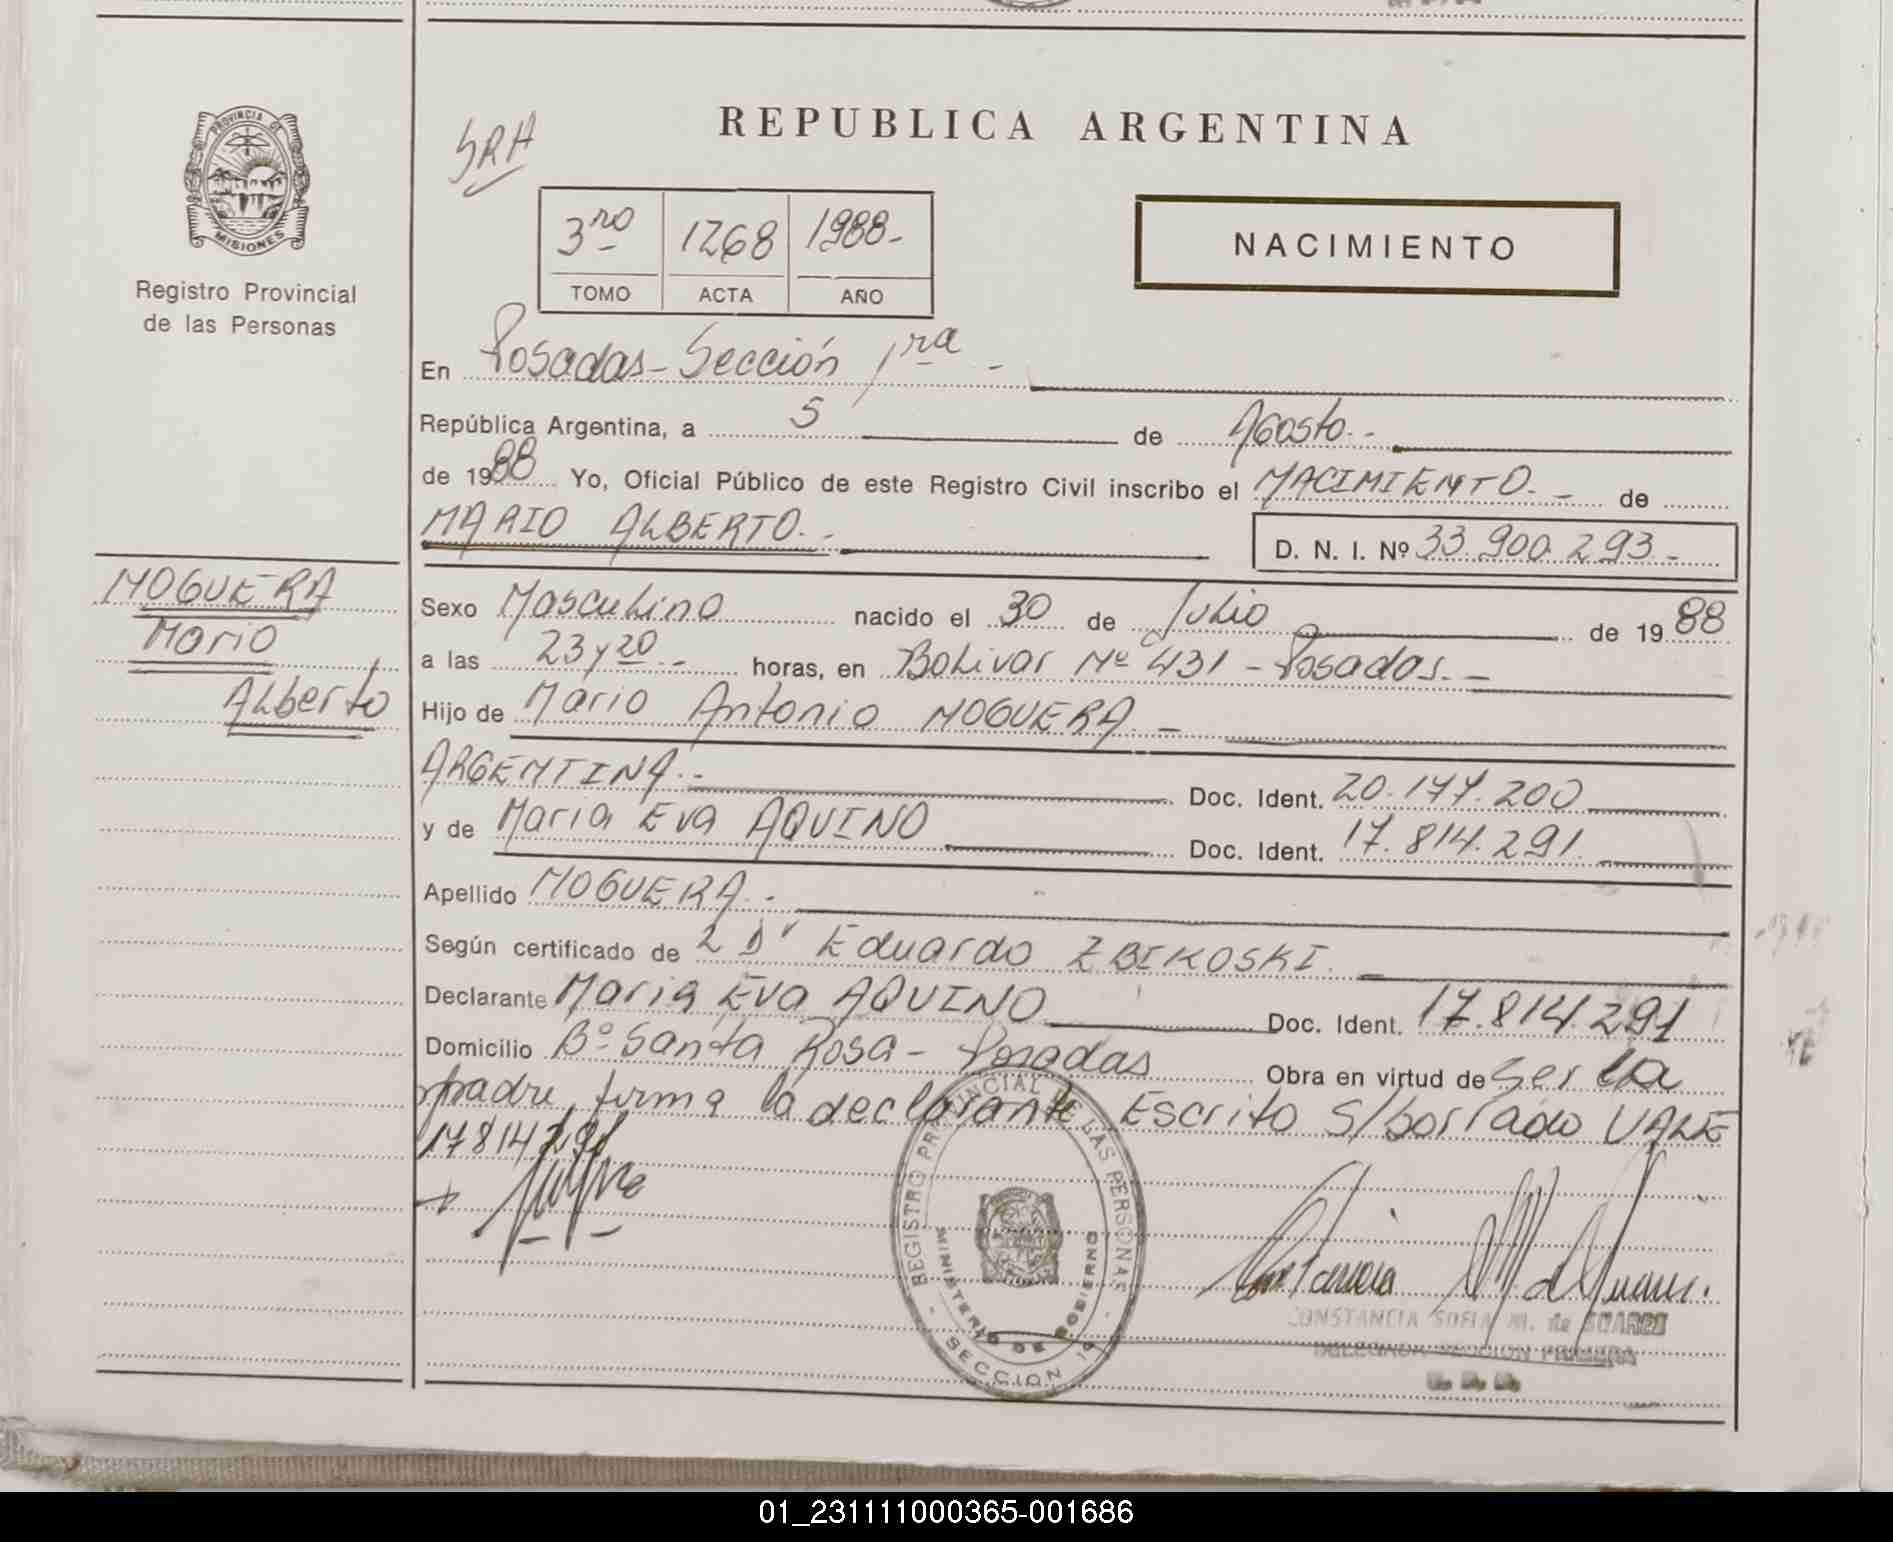 PROVINCIA DE
MISIONES
Registro Provincial
de las Personas
SRH
REPUBLICA ARGENTINA
3ro 1268 1988-
TOMO ACTA AÑO
NACIMIENTO
En Posadas - Sección 1ra -
República Argentina, a 5 de Agosto.-
de 1988 Yo, Oficial Público de este Registro Civil inscribo el NACIMIENTO.- de
MARIO ALBERTO.-
D. N. I. Nº 33.900.293-
NOGUERA
Mario
Alberto
Sexo Masculino nacido el 30 de Julio de 1988
a las 23 y 20 - horas, en Bolivar Nº 431 - Posadas.-
Hijo de Mario Antonio NOGUERA.-
ARGENTINA.- Doc. Ident. 20.177.200
y de Maria Eva AQUINO Doc. Ident. 17.814.291.
Apellido NOGUERA.-
Según certificado de Dr Eduardo ZBIKOSKI.-
Declarante Maria Eva AQUINO Doc. Ident. 17.814.291
Domicilio Bº Santa Rosa - Posadas Obra en virtud de Ser la
madre, firma la declarante Escrito S/borrado VALE
17814291
REGISTRO PROVINCIAL DE LAS PERSONAS
MINISTERIO DE GOBIERNO
- SECCION 1ª -
CONSTANCIA SOFIA M. de SUAREZ
DELEGADA SECCION PRIMERA
01_231111000365-001686